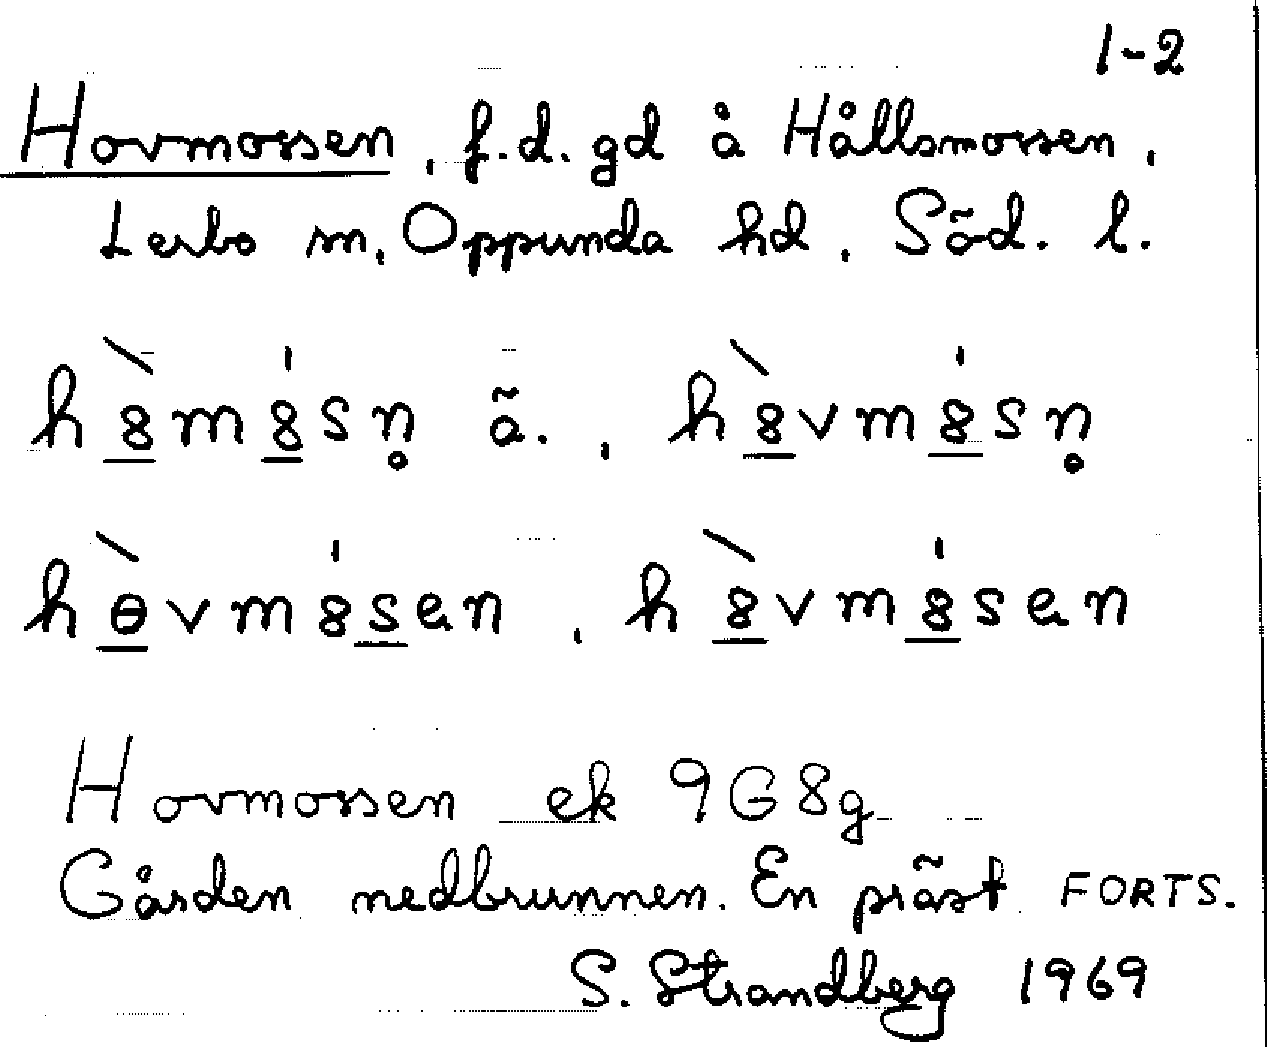 1-2
Hovmossen, f.d. gd å Hållsmossen,
Lerbo sn, Oppunda hd, Söd. l.
hò̱8mó̱8sn̥ ä., hò̱8vmó̱8sn̥
hɵ̱̀vm8́s̱en, h8̱̀vm8̱́sen
Hovmossen ek 9G8g
Gården nedbrunnen. En präst FORTS.
S. Strandberg 1969